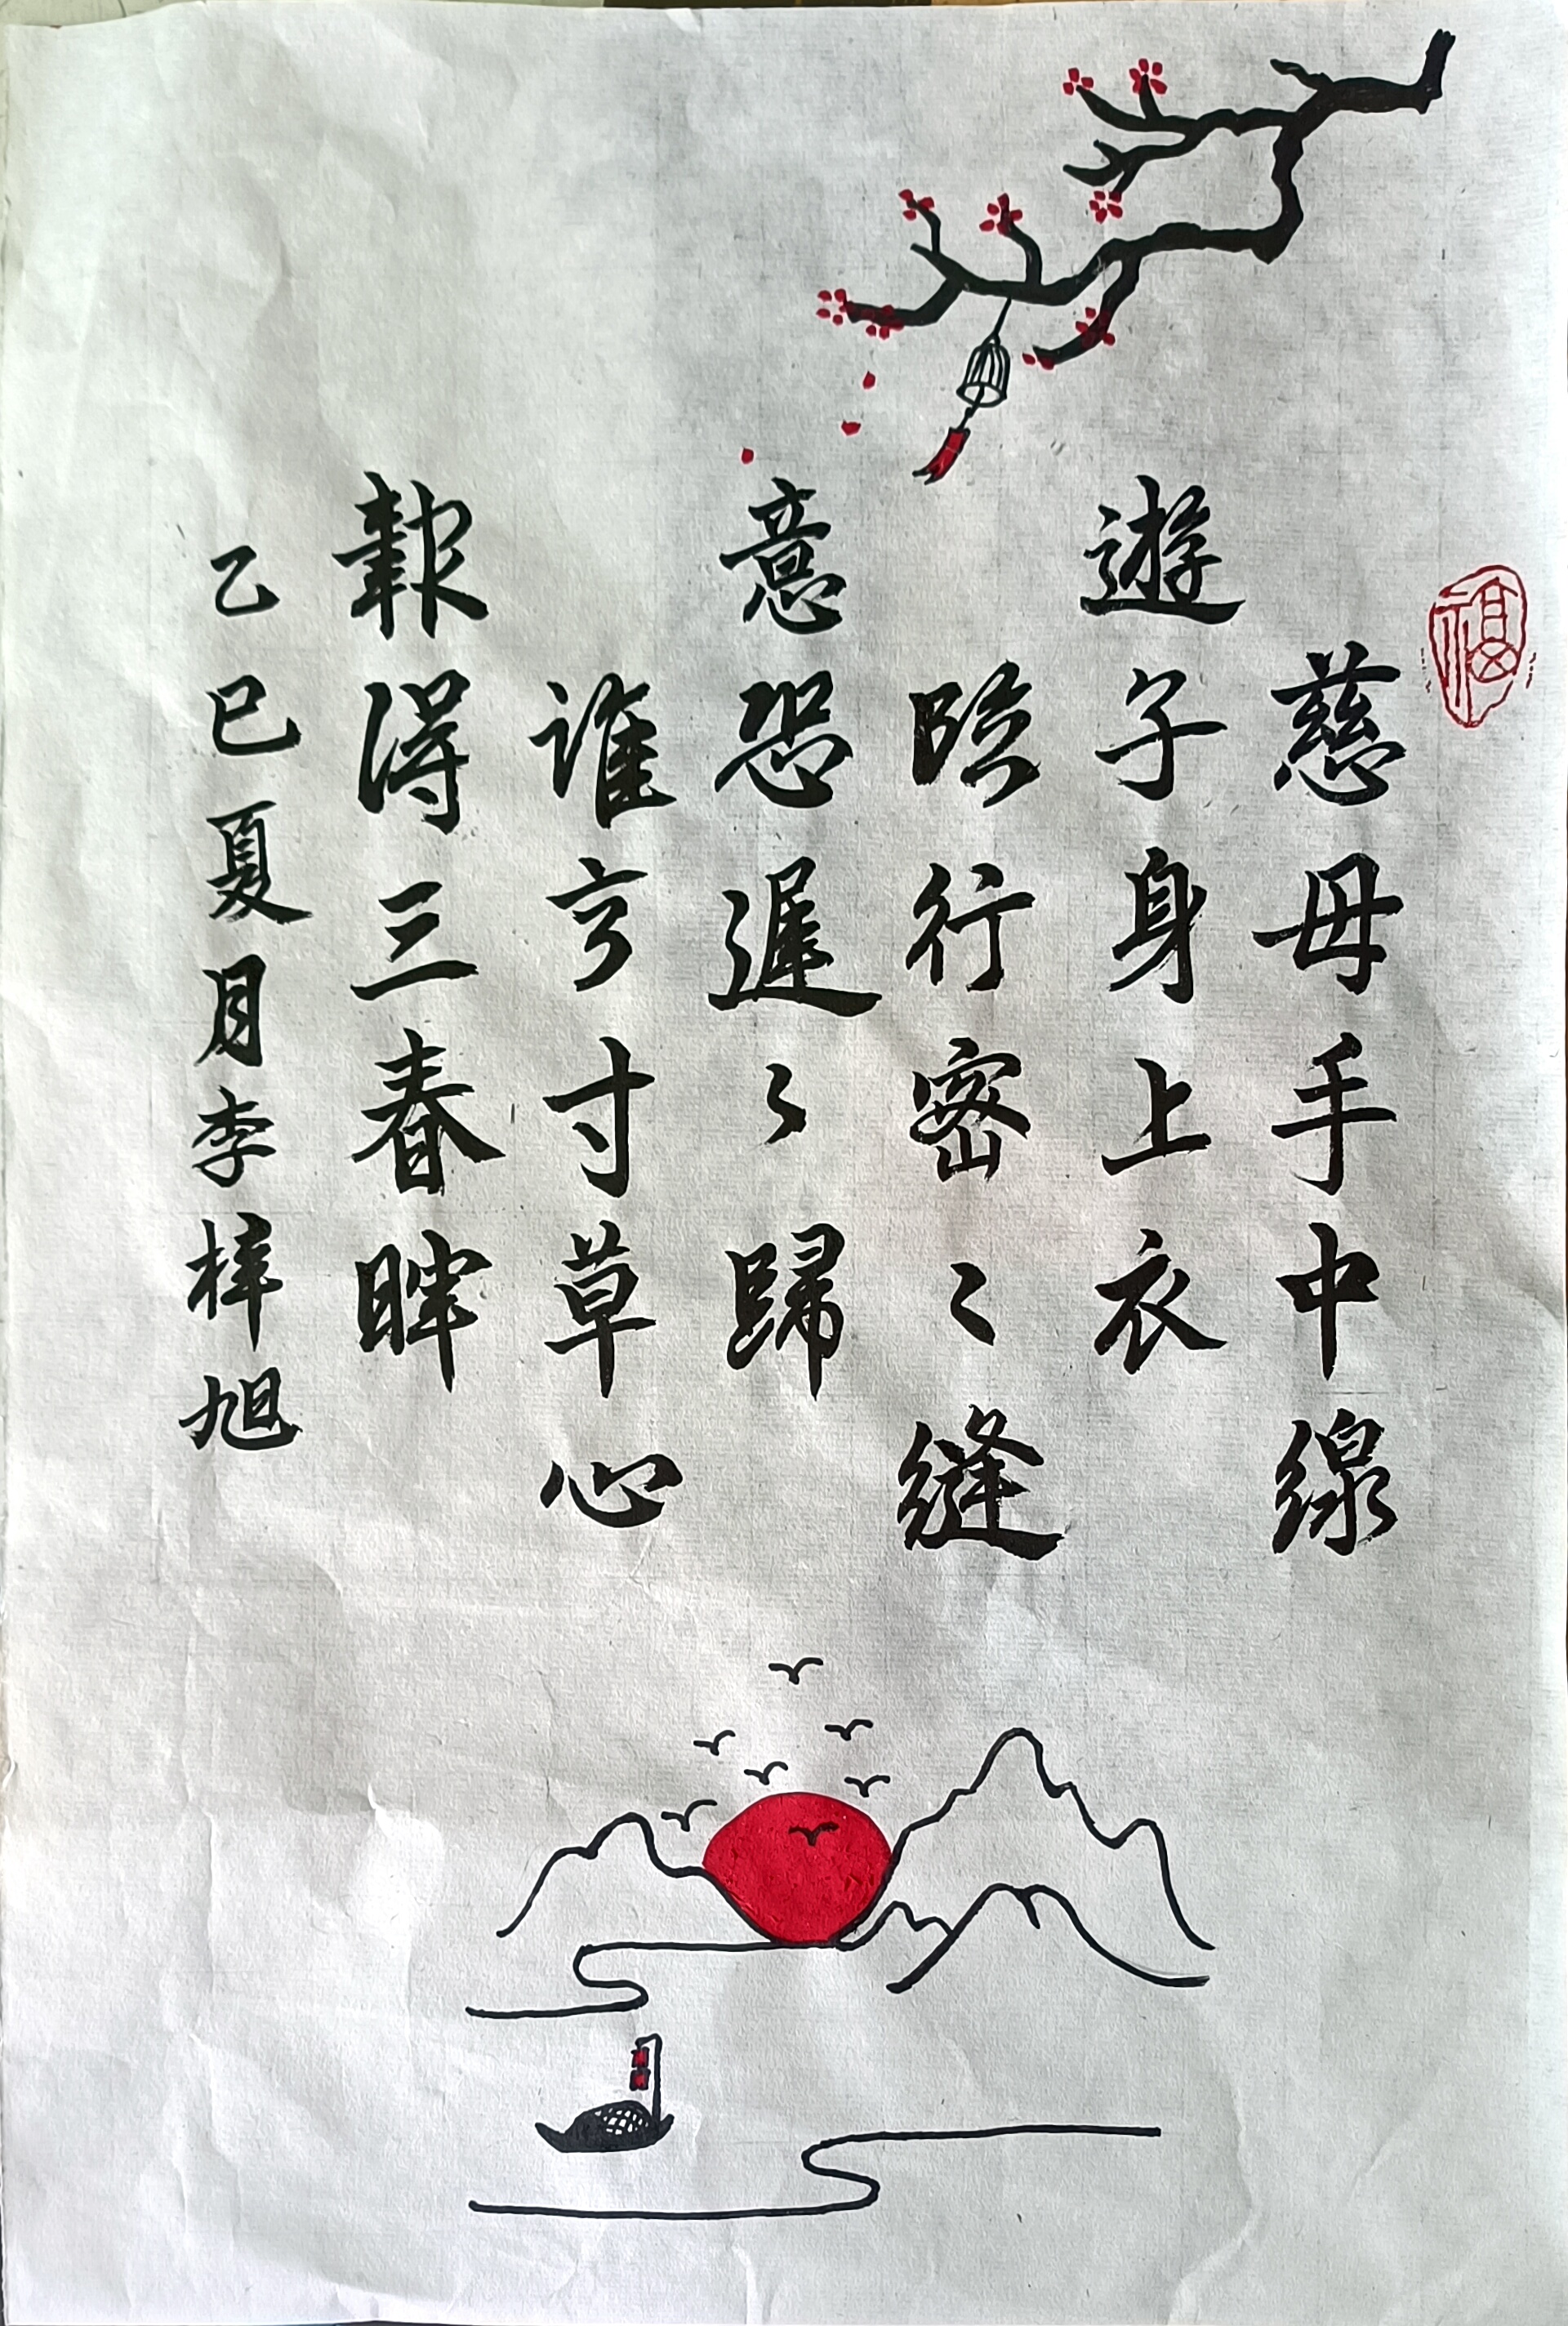 福
慈母手中線
遊子身上衣
臨行密〻縫
意恐遲〻歸
誰言寸草心
報得三春暉
乙巳夏月李梓旭